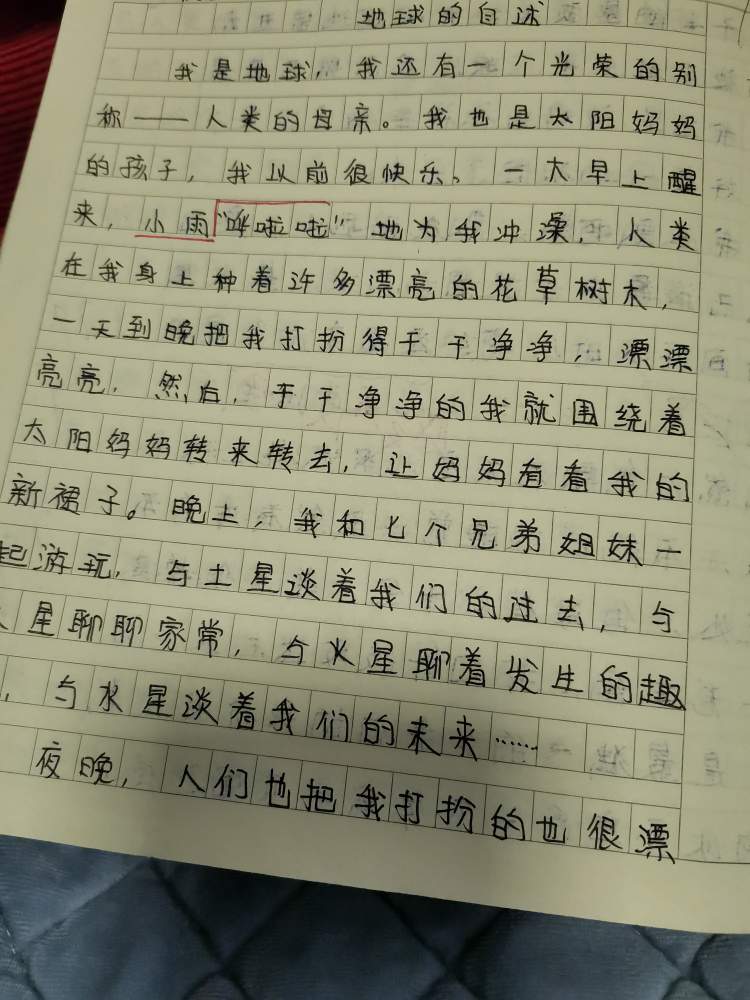 地球的自述
我是地球，我还有一个光荣的别
称——人类的母亲。我也是太阳妈妈
的孩子，我以前很快乐。一大早上醒
来，小雨“呼啦啦”地为我冲澡，人类
在我身上种着许多漂亮的花草树木，
一天到晚把我打扮得干干净净，漂漂
亮亮，然后，干干净净的我就围绕着
太阳妈妈转来转去，让妈妈看看我的
新裙子。晚上，我和七个兄弟姐妹一
起游玩，与土星谈着我们的过去，与
星聊聊家常，与火星聊着发生的趣
，与水星谈着我们的未来……
夜晚，人们也把我打扮的也很漂